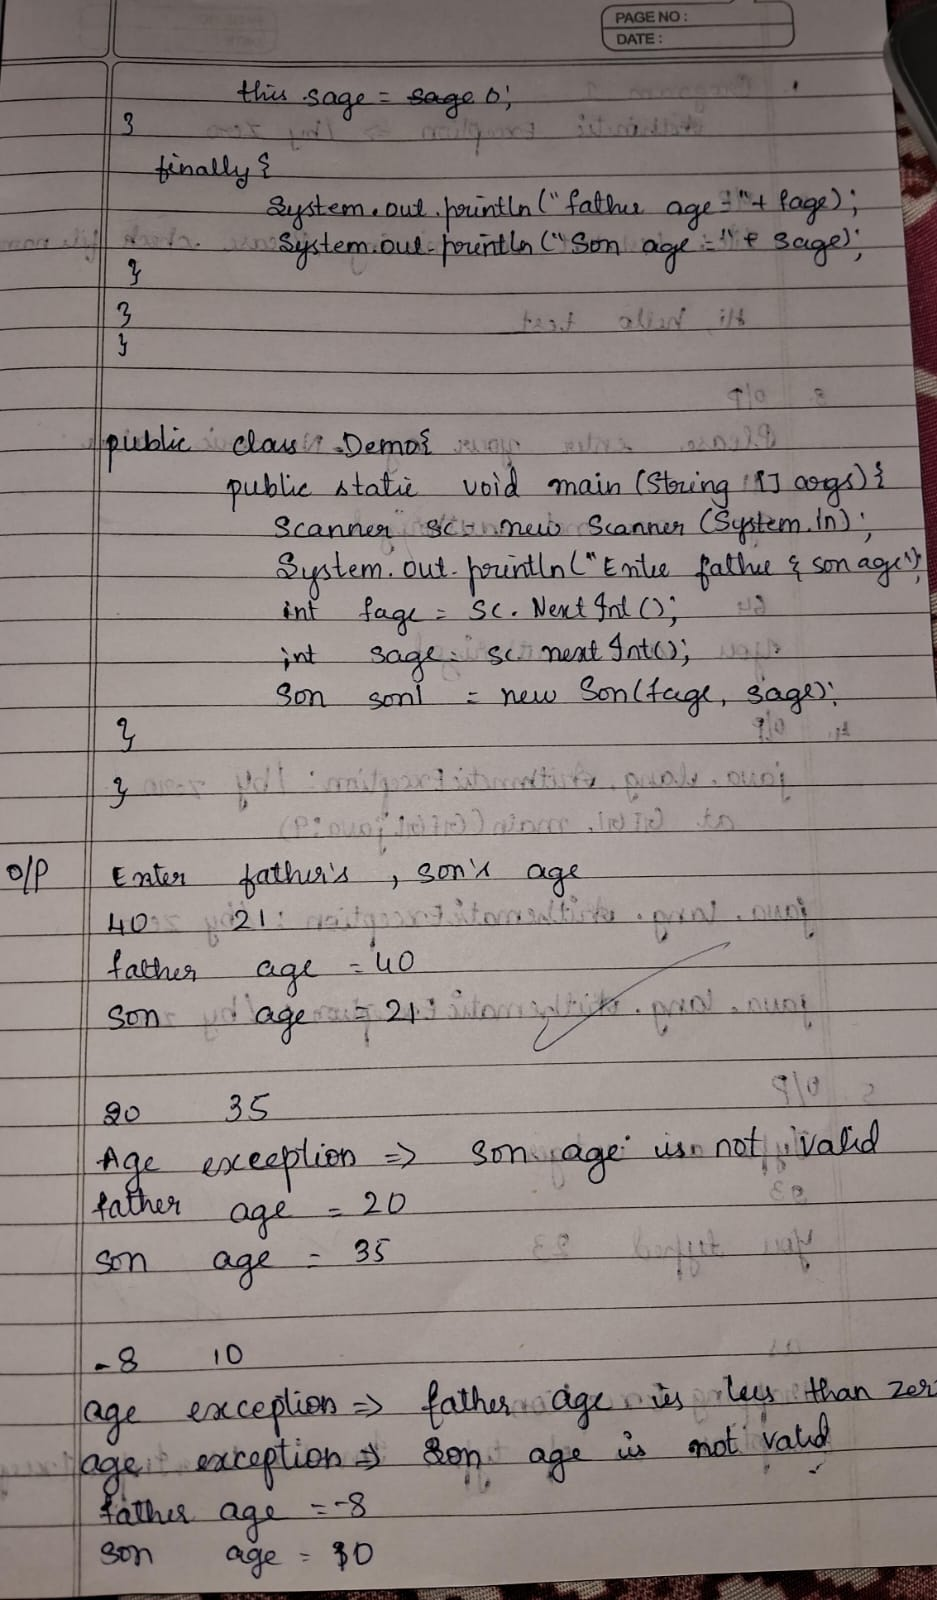 PAGE NO:
DATE:
this.sage = sage 0;
}
finally {
System.out.println("father age = "+ fage);
System.out.println("Son age =" + sage);
}
}
}
public class Demo{
public static void main (String [] args) {
Scanner sc = new Scanner (System.in);
System.out.println("Enter father & son age");
int fage = sc.NextInt();
int sage = sc.nextInt();
Son son1 = new Son(fage, sage);
}
}
O/P Enter father's, son's age
40 21
father age = 40
son age = 21
20 35
Age exception => son age is not valid
father age = 20
son age = 35
-8 10
age exception => father age is less than zer
age exception => Son age is not valid
father age = -8
son age = 10